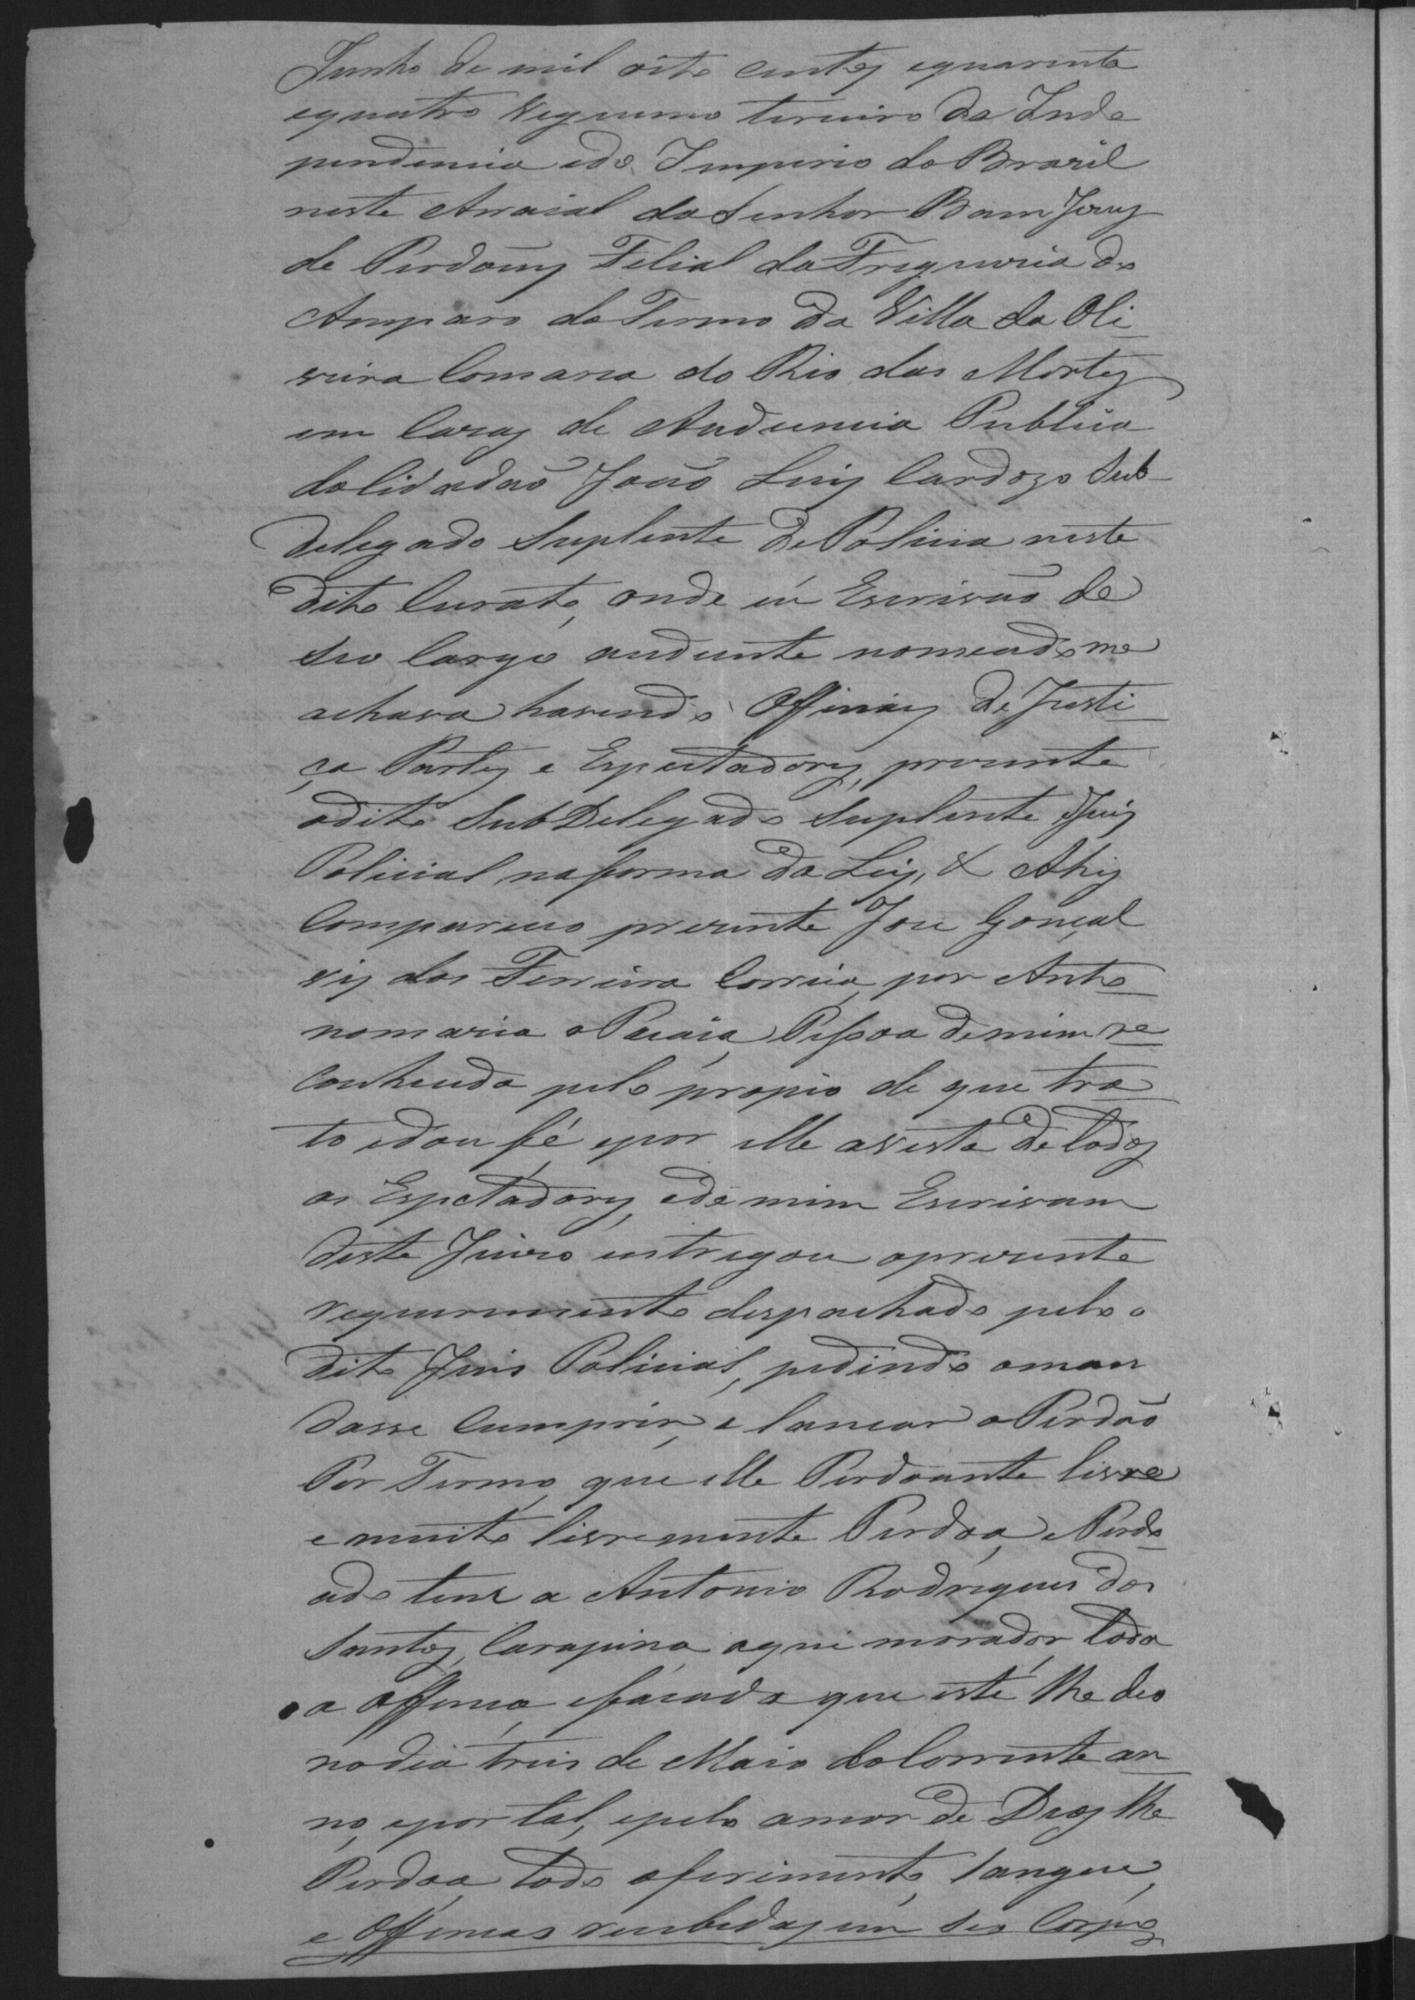 Junho de mil oito centos equarenta
equatro Vegecimo terceiro da Inde
pendencia edo Imperio do Brazil
neste Arraial do Senhor Bam Jezus
de Perdoins Felial da Freguezia do
Amparo do Termo da Villa da Oli
veira Comarca do Rio das Mortes
em Cazas de Audiencia Publica
doCidadaõ Joaõ Luis Cardozo Sub-
delegado Suplente de Policia neste
dito Curato, onde eu Escrivaõ de
seo Cargo audiante nomeado me
achava havendo Officiais de Justi
ça Partes e Expectadores, prezente
odito SubDelegado Suplente Juis
Policial naforma da Lei, & Ahi
Compareceo prezente Joze Gonçal
vis dos Ferreira Correia, por Anto
nomazia o Pacáia, Pessoa demim re
conhecida pelo propio de que tra
to edou fé, epor elle avista de todos
os Expctadores, ede mim Escrivam
deste Juizo entregou oprezente
requerimento despachado pelo o
dito Juis Policial, pedindo oman
dasse Cumprir, e lancar o Perdaõ
Por Termo, que elle Perdoante livre
e muito livremente Perdoa, e Perdo
ado tem a Antonio Rodrigues dos
Santos, Carapina aqui morador, toda
a offenca, efacada que este lhe deo
nodia treis de Maio doCorrente an
no, epor tal, epelo amor de Deos lhe
Perdoa todo oferimento, sangue,
e Offencas recebidas em seo Corpo